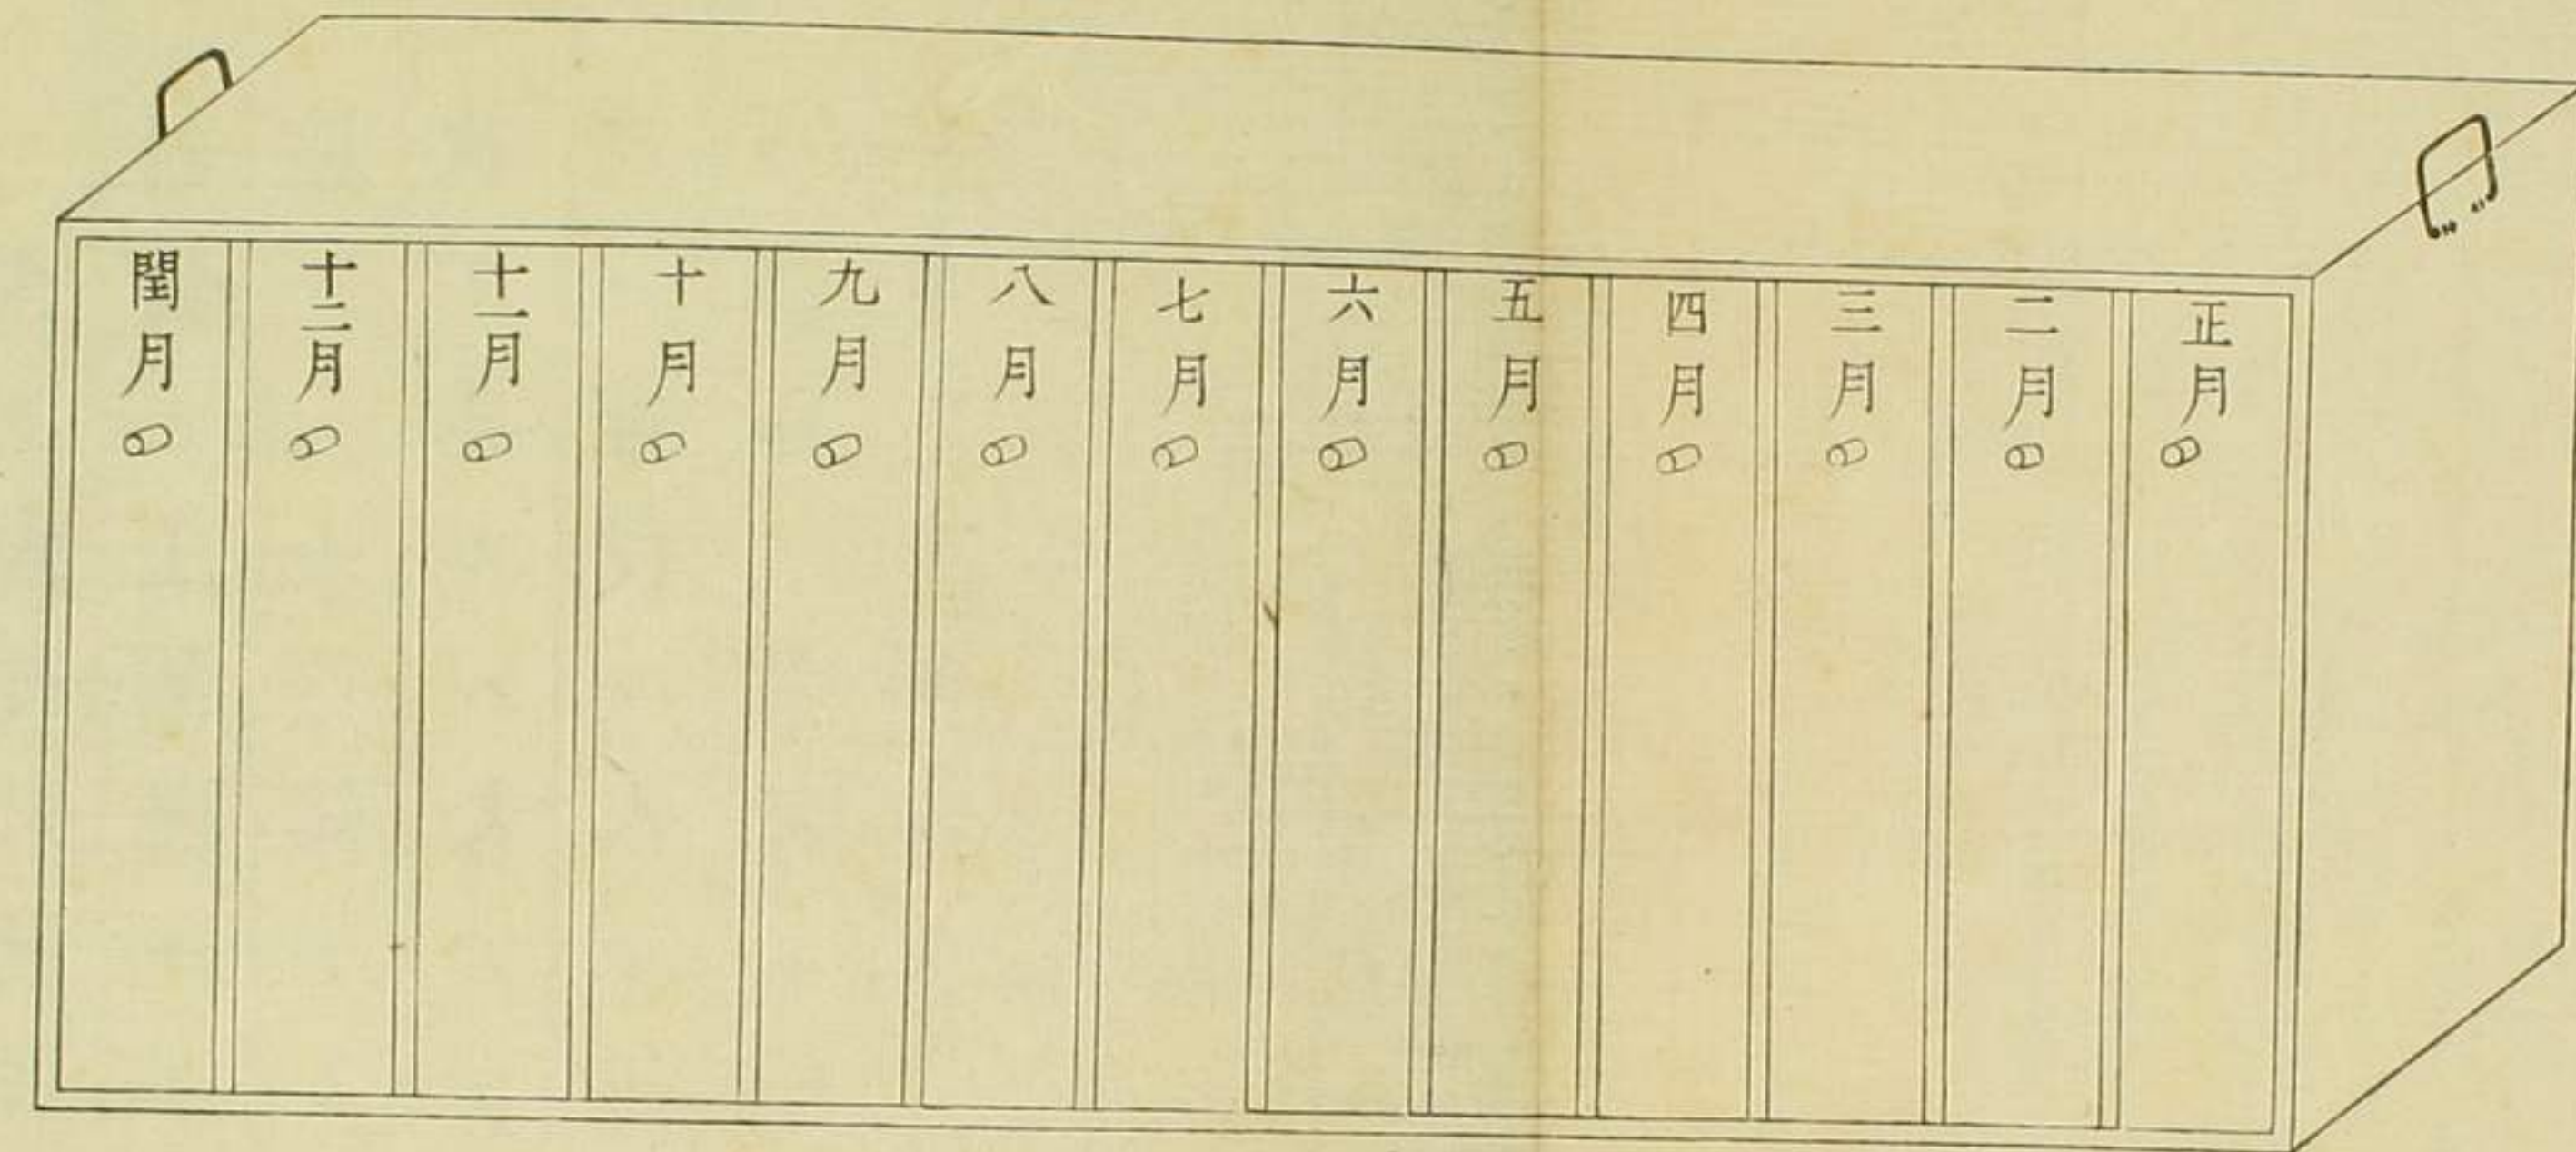 正月
二月
三月
四月
五月
六月
七月
八月
九月
十月
十一月
十二月
閏月